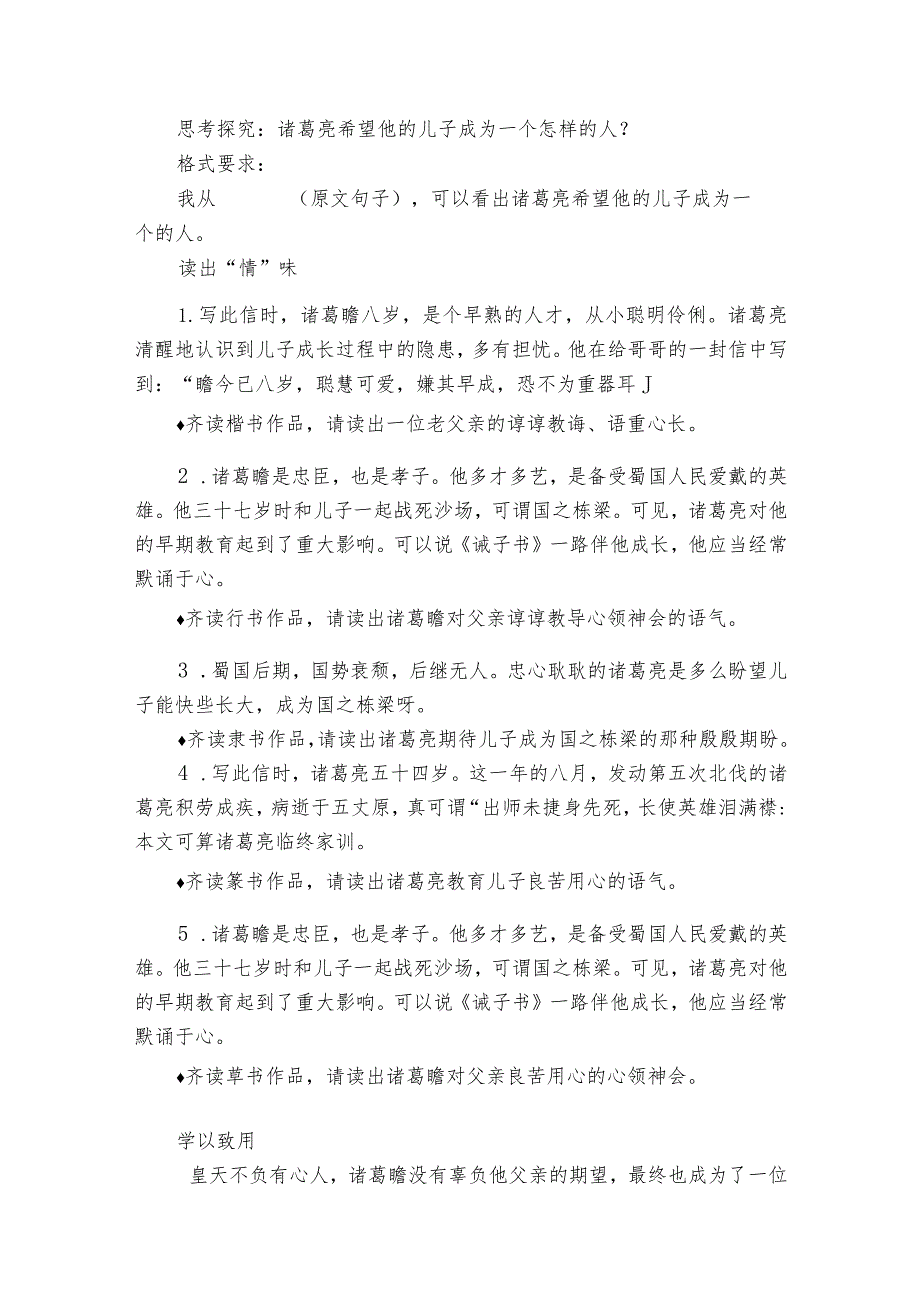 思考探究：诸葛亮希望他的儿子成为一个怎样的人？
格式要求：
我从 （原文句子），可以看出诸葛亮希望他的儿子成为一
个的人。
读出“情”味
1.写此信时，诸葛瞻八岁，是个早熟的人才，从小聪明伶俐。诸葛亮
清醒地认识到儿子成长过程中的隐患，多有担忧。他在给哥哥的一封信中写
到：“瞻今已八岁，聪慧可爱，嫌其早成，恐不为重器耳J
♦齐读楷书作品，请读出一位老父亲的谆谆教诲、语重心长。
2 .诸葛瞻是忠臣，也是孝子。他多才多艺，是备受蜀国人民爱戴的英
雄。他三十七岁时和儿子一起战死沙场，可谓国之栋梁。可见，诸葛亮对他
的早期教育起到了重大影响。可以说《诫子书》一路伴他成长，他应当经常
默诵于心。
♦齐读行书作品，请读出诸葛瞻对父亲谆谆教导心领神会的语气。
3 .蜀国后期，国势衰颓，后继无人。忠心耿耿的诸葛亮是多么盼望儿
子能快些长大，成为国之栋梁呀。
♦齐读隶书作品,请读出诸葛亮期待儿子成为国之栋梁的那种殷殷期盼。
4 .写此信时，诸葛亮五十四岁。这一年的八月，发动第五次北伐的诸
葛亮积劳成疾，病逝于五丈原，真可谓“出师未捷身先死，长使英雄泪满襟:
本文可算诸葛亮临终家训。
♦齐读篆书作品，请读出诸葛亮教育儿子良苦用心的语气。
5 .诸葛瞻是忠臣，也是孝子。他多才多艺，是备受蜀国人民爱戴的英
雄。他三十七岁时和儿子一起战死沙场，可谓国之栋梁。可见，诸葛亮对他
的早期教育起到了重大影响。可以说《诫子书》一路伴他成长，他应当经常
默诵于心。
♦齐读草书作品，请读出诸葛瞻对父亲良苦用心的心领神会。
学以致用
皇天不负有心人，诸葛瞻没有辜负他父亲的期望，最终也成为了一位